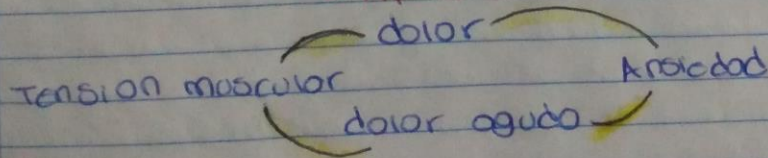 dolor
Tension muscular Ansiedad
dolor agudo